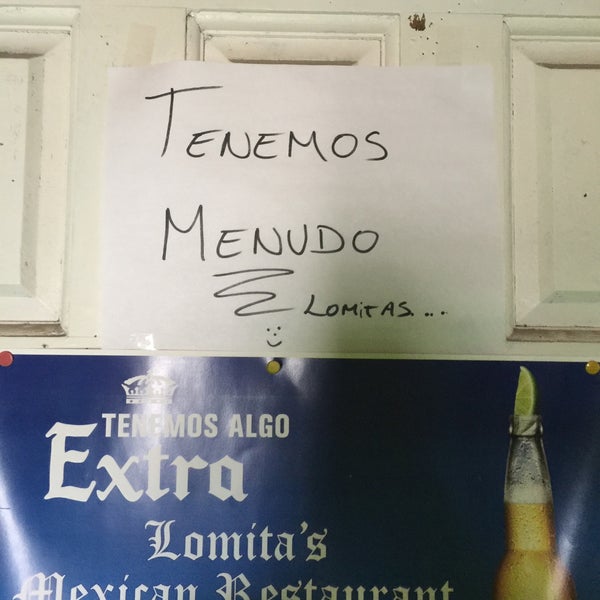 TENEMOS
MENUDO
LOMITAS...
TENEMOS ALGO
Extra
Lomita's
Mexican Restaurant